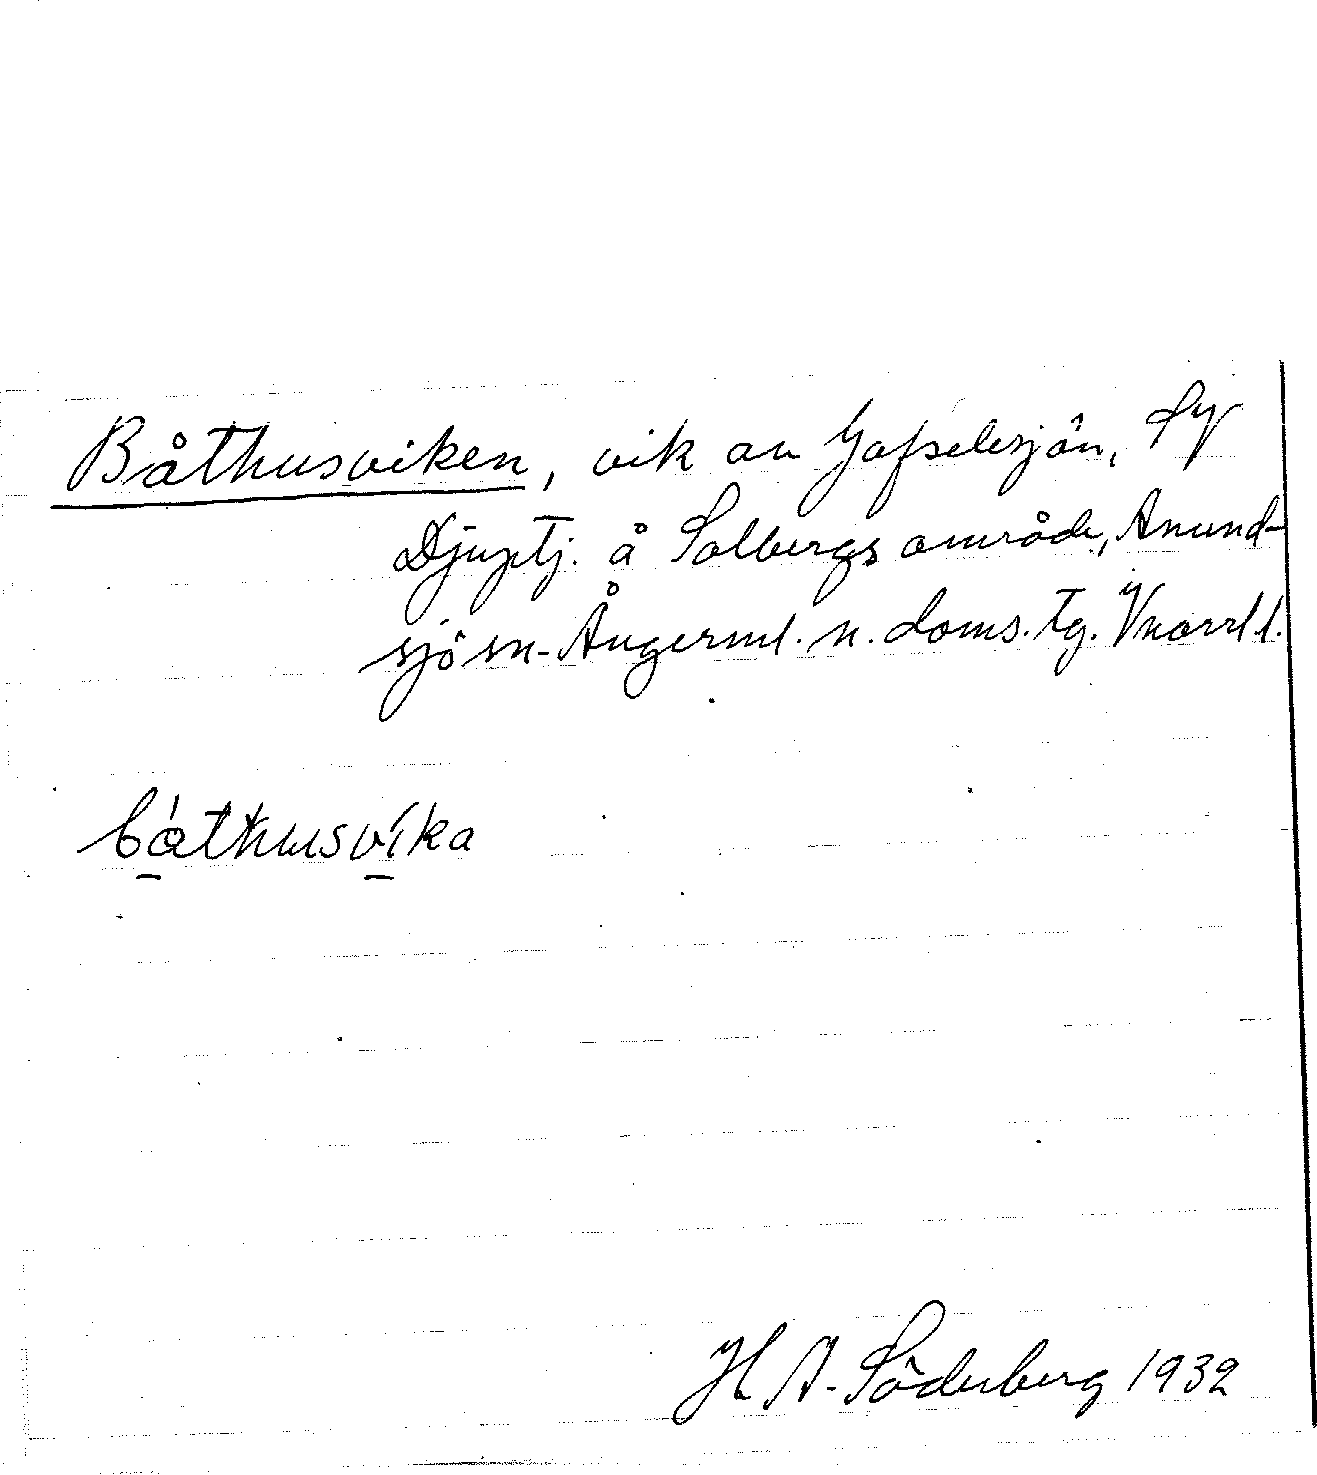 Båthusviken, vik av Gafselesjön, SV
Djuptj. å Solbergs område, Anund-
sjö sn. Ångerml. n. doms. tg. Vnorrl.l.
båthusvika
H A. Söderberg 1932